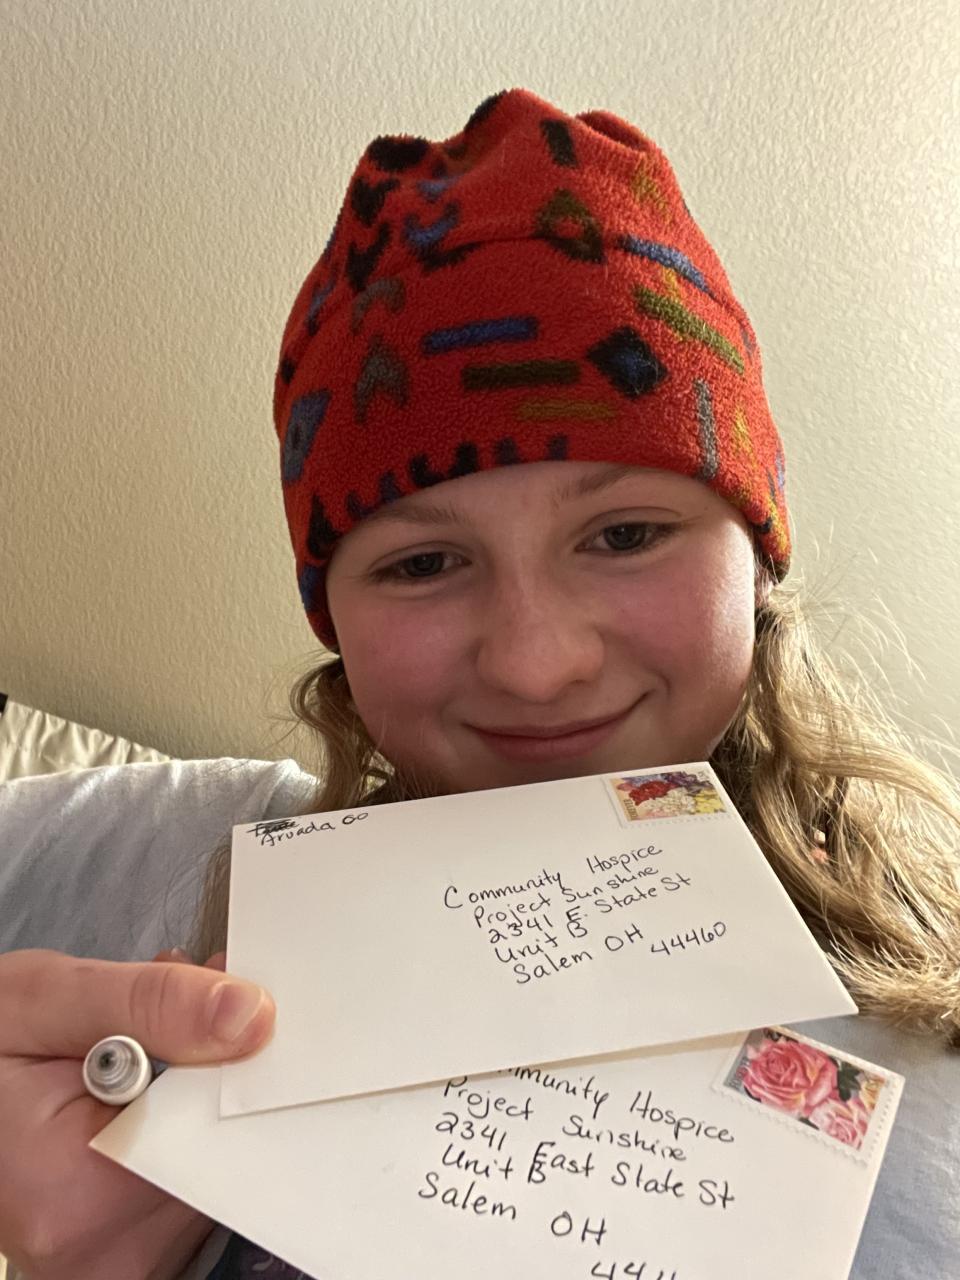 Arvada CO
Community Hospice
Project Sunshine
2341 E. State St
Unit B
Salem OH 44460
mmunity Hospice
Project Sunshine
2341 East State St
Unit B
Salem OH
444